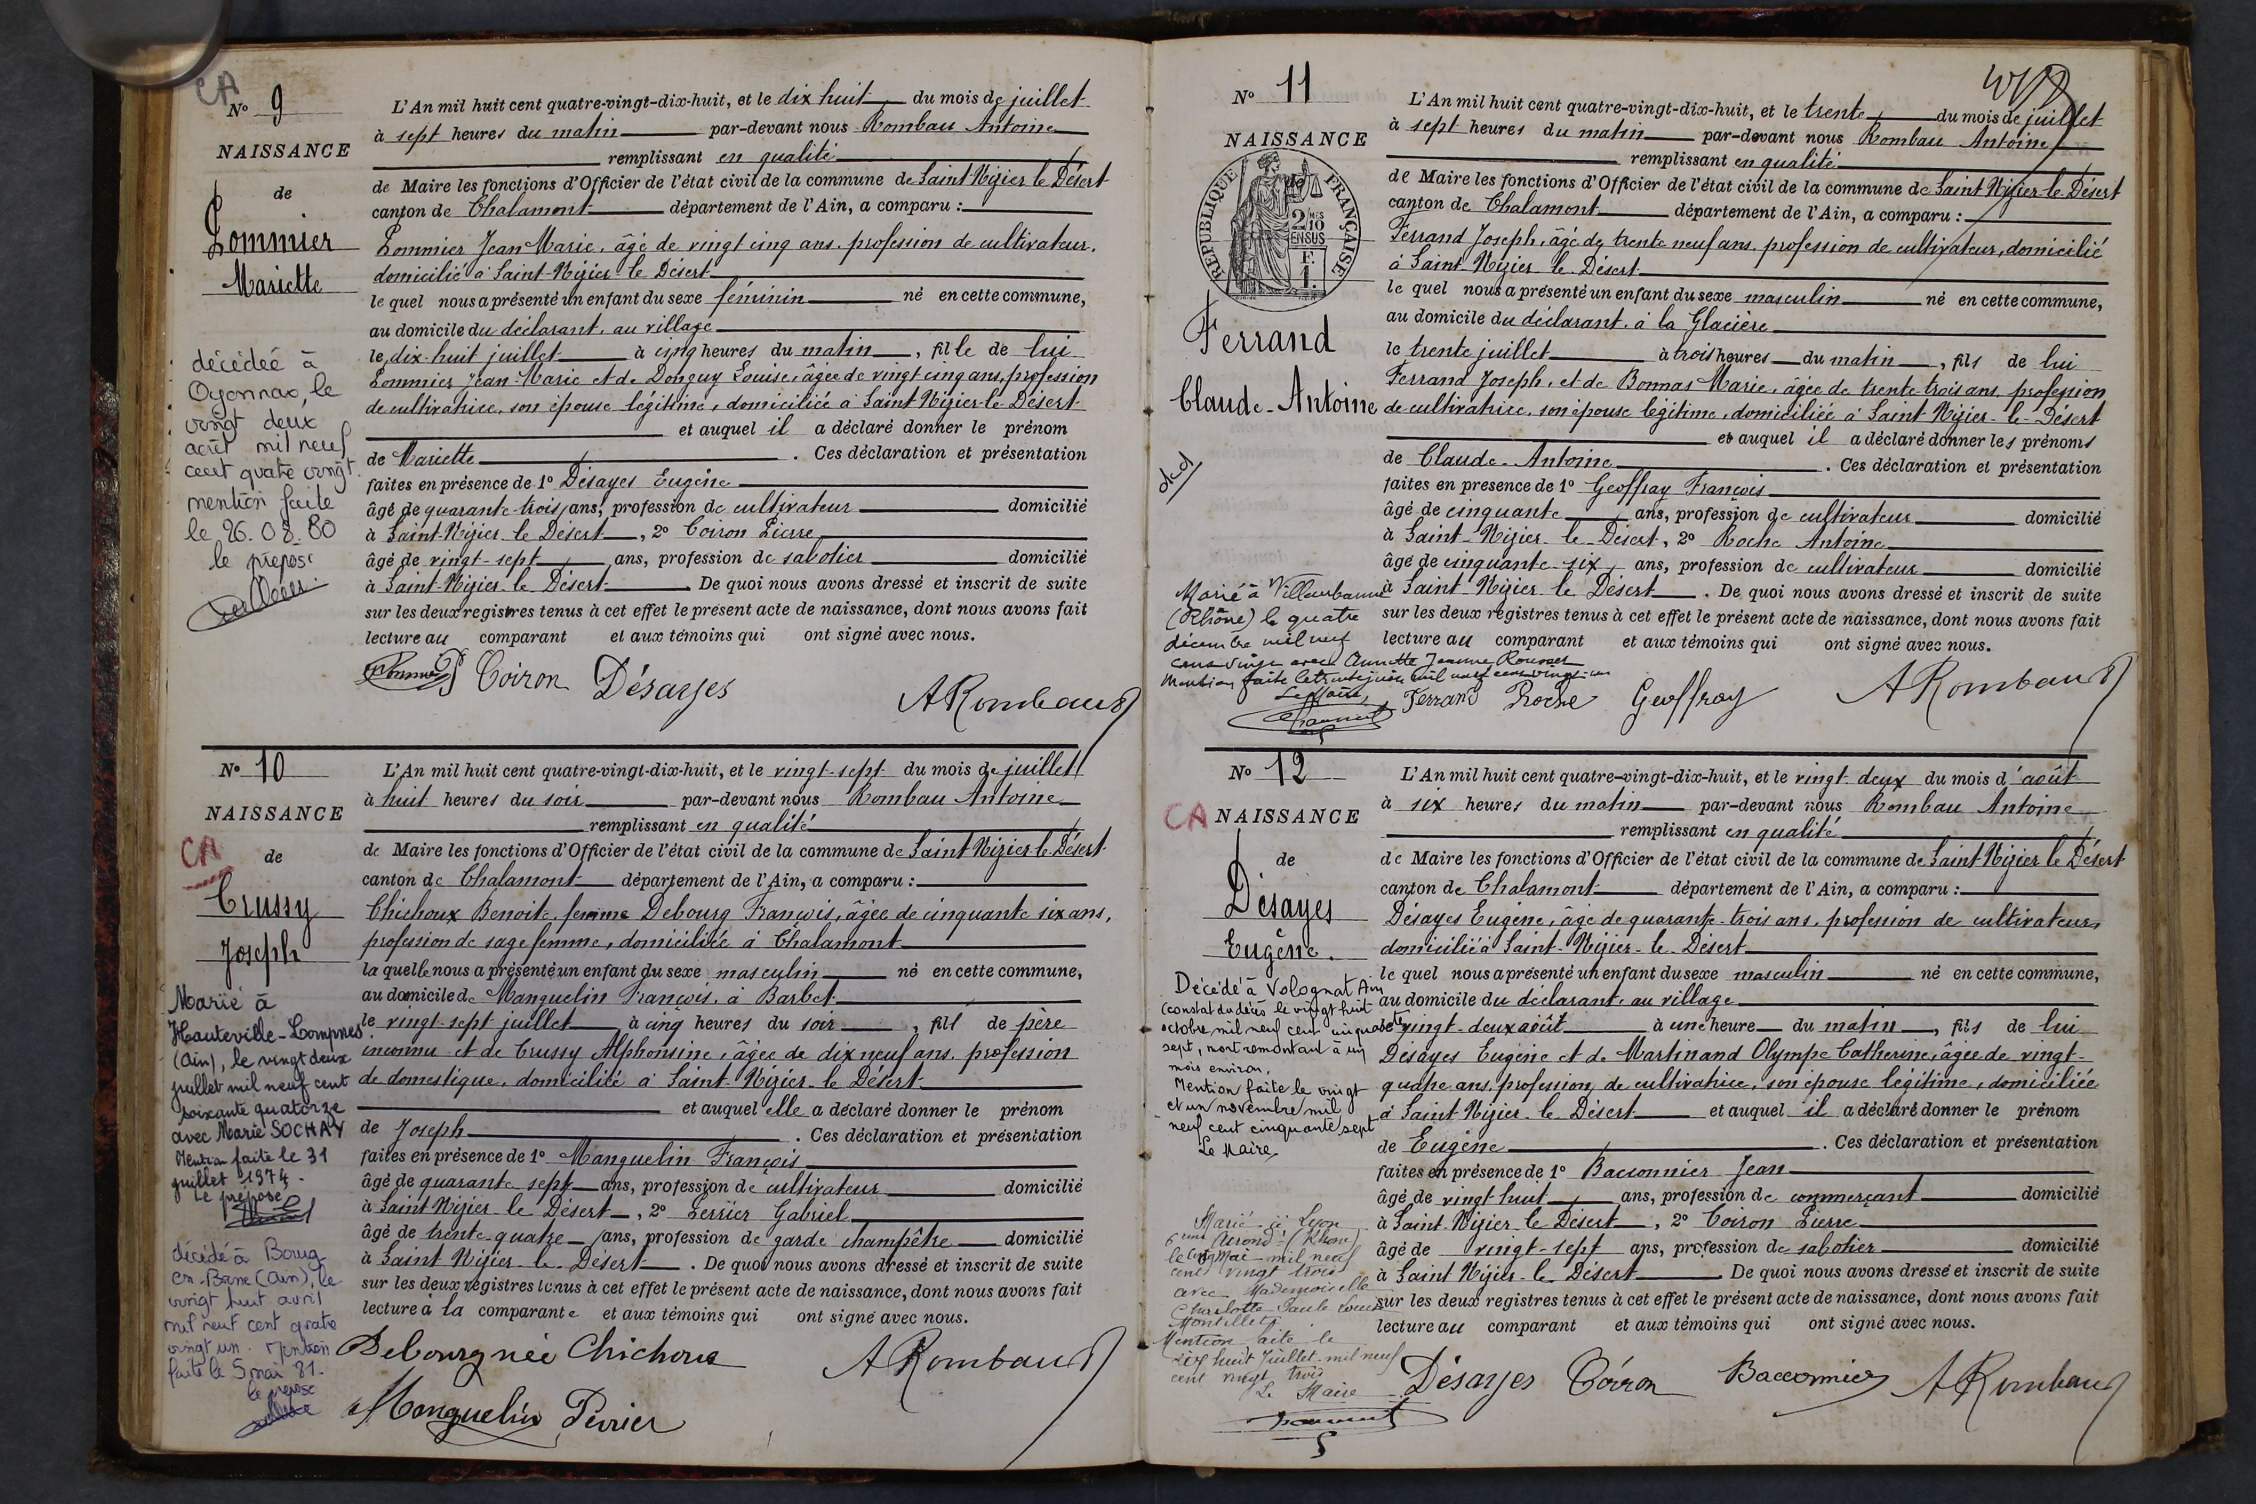 CA
N° 9
NAISSANCE
de
Pommier
Mariette
L'An mil huit cent quatre-vingt-dix-huit, et le dix huit du mois de juillet
à sept heures du matin par-devant nous Rombau Antoine
remplissant en qualité
de Maire les fonctions d'Officier de l'état civil de la commune de Saint Nizier le Désert
canton de Chalamont département de l'Ain, a comparu :
Pommier Jean Marie, âgé de vingt cinq ans, profession de cultivateur,
domicilié à Saint-Nizier le Désert
le quel nous a présenté un enfant du sexe féminin né en cette commune,
au domicile du déclarant, au village
le dix-huit juillet à cinq heures du matin, fille de lui
Pommier Jean-Marie et de Donguy Louise, âgée de vingt cinq ans, profession
de cultivatrice, son épouse légitime, domiciliée à Saint Nizier-le-Désert
et auquel il a déclaré donner le prénom
de Mariette. Ces déclaration et présentation
faites en présence de 1° Désayes Eugène
âgé de quarante-trois ans, profession de cultivateur domicilié
à Saint-Nizier le Désert, 2° Coiron Pierre
âgé de vingt-sept ans, profession de sabotier domicilié
à Saint-Nizier le Désert. De quoi nous avons dressé et inscrit de suite
sur les deux registres tenus à cet effet le présent acte de naissance, dont nous avons fait
lecture au comparant et aux témoins qui ont signé avec nous.
Pommier Coiron Désayes ARombaud
décédée à
Oyonnax, le
vingt deux
août mil neuf
cent quatre vingt.
mention faite
le 26.08.80
le préposé
N° 10
NAISSANCE
CA
de
Crussy
Joseph
L'An mil huit cent quatre-vingt-dix-huit, et le vingt-sept du mois de juillet
à huit heures du soir par-devant nous Rombau Antoine
remplissant en qualité
de Maire les fonctions d'Officier de l'état civil de la commune de Saint Nizier-le-Désert
canton de Chalamont département de l'Ain, a comparu :
Chichoux Benoite, femme Debourg François, âgée de cinquante six ans,
profession de sage femme, domiciliée à Chalamont
la quelle nous a présenté un enfant du sexe masculin né en cette commune,
au domicile de Manguelin François, à Barbet
le vingt-sept juillet à cinq heures du soir, fils de père
inconnu et de Crussy Alphonsine, âgée de dix neuf ans, profession
de domestique, domicilié à Saint-Nizier-le Désert
et auquel elle a déclaré donner le prénom
de Joseph. Ces déclaration et présentation
faites en présence de 1° Manguelin François
âgé de quarante sept ans, profession de cultivateur domicilié
à Saint Nizier-le-Désert, 2° Perrier Gabriel
âgé de trente-quatre ans, profession de garde champêtre domicilié
à Saint Nizier-le-Désert. De quoi nous avons dressé et inscrit de suite
sur les deux registres tenus à cet effet le présent acte de naissance, dont nous avons fait
lecture à la comparante et aux témoins qui ont signé avec nous.
Debourg née Chichoux ARombaud
Manguelin Perrier
Marié à
Hauteville-Lompnes
(Ain), le vingt deux
juillet mil neuf cent
soixante quatorze
avec Marie SOCHAY
Mention faite le 31
juillet 1974.
Le préposé
décédé à Bourg
en-Bresse (Ain), le
vingt huit avril
mil neuf cent quatre
vingt un. Mention
faite le 5 mai 81.
le préposé
N° 11
NAISSANCE
de
RÉPUBLIQUE FRANÇAISE
2/10 EN SUS
F. 1.
Ferrand
Claude-Antoine
dcd
L'An mil huit cent quatre-vingt-dix-huit, et le trente du mois de juillet
à sept heures du matin par-devant nous Rombau Antoine
remplissant en qualité
de Maire les fonctions d'Officier de l'état civil de la commune de Saint Nizier-le-Désert
canton de Chalamont département de l'Ain, a comparu :
Ferrand Joseph, âgé de trente neuf ans, profession de cultivateur, domicilié
à Saint-Nizier-le-Désert
le quel nous a présenté un enfant du sexe masculin né en cette commune,
au domicile du déclarant, à la Glacière
le trente juillet à trois heures du matin, fils de lui
Ferrand Joseph, et de Bonnas Marie, âgée de trente trois ans, profession
de cultivatrice, son épouse légitime, domiciliée à Saint Nizier-le-Désert
et auquel il a déclaré donner les prénoms
de Claude-Antoine. Ces déclaration et présentation
faites en présence de 1° Geoffray François
âgé de cinquante ans, profession de cultivateur domicilié
à Saint-Nizier-le-Désert, 2° Roche Antoine
âgé de cinquante-six ans, profession de cultivateur domicilié
à Saint Nizier le Désert. De quoi nous avons dressé et inscrit de suite
sur les deux registres tenus à cet effet le présent acte de naissance, dont nous avons fait
lecture au comparant et aux témoins qui ont signé avec nous.
Ferrand Roche Geoffray ARombaud
Marié à Villeurbanne
(Rhône) le quatre
décembre mil neuf
cent vingt avec Annette Jeanne Rousset
Mention faite le trente juin mil neuf cent vingt-un
Le Maire,
N° 12
CA NAISSANCE
de
Désayes
Eugène.
L'An mil huit cent quatre-vingt-dix-huit, et le vingt-deux du mois d'août
à six heures du matin par-devant nous Rombau Antoine
remplissant en qualité
de Maire les fonctions d'Officier de l'état civil de la commune de Saint Nizier le Désert
canton de Chalamont département de l'Ain, a comparu :
Désayes Eugène, âgé de quarante-trois ans, profession de cultivateur,
domicilié à Saint-Nizier-le-Désert
le quel nous a présenté un enfant du sexe masculin né en cette commune,
au domicile du déclarant, au village
le vingt-deux août à une heure du matin, fils de lui
Désayes Eugène et de Martinand Olympe Catherine, âgée de vingt-
quatre ans, profession de cultivatrice, son épouse légitime, domiciliée
à Saint Nizier-le-Désert et auquel il a déclaré donner le prénom
de Eugène. Ces déclaration et présentation
faites en présence de 1° Bacconnier Jean
âgé de vingt huit ans, profession de commerçant domicilié
à Saint-Nizier le Désert, 2° Coiron Pierre
âgé de vingt-sept ans, profession de sabotier domicilié
à Saint Nizier-le-Désert. De quoi nous avons dressé et inscrit de suite
sur les deux registres tenus à cet effet le présent acte de naissance, dont nous avons fait
lecture au comparant et aux témoins qui ont signé avec nous.
Désayes Coiron Bacconnier ARombaud
Décédé à Volognat Ain
(constat du décès le vingt huit
octobre mil neuf cent cinquante
sept, mort remontant à un
mois environ.
Mention faite le vingt
et un novembre mil
neuf cent cinquante sept
Le Maire,
Marié à Lyon
6ème Arrond. (Rhône)
le cinq Mai mil neuf
cent vingt trois
avec Mademoiselle
Charlotte Paule Louise
Montillet
Mention faite le
dix huit Juillet mil neuf
cent vingt trois
Le Maire